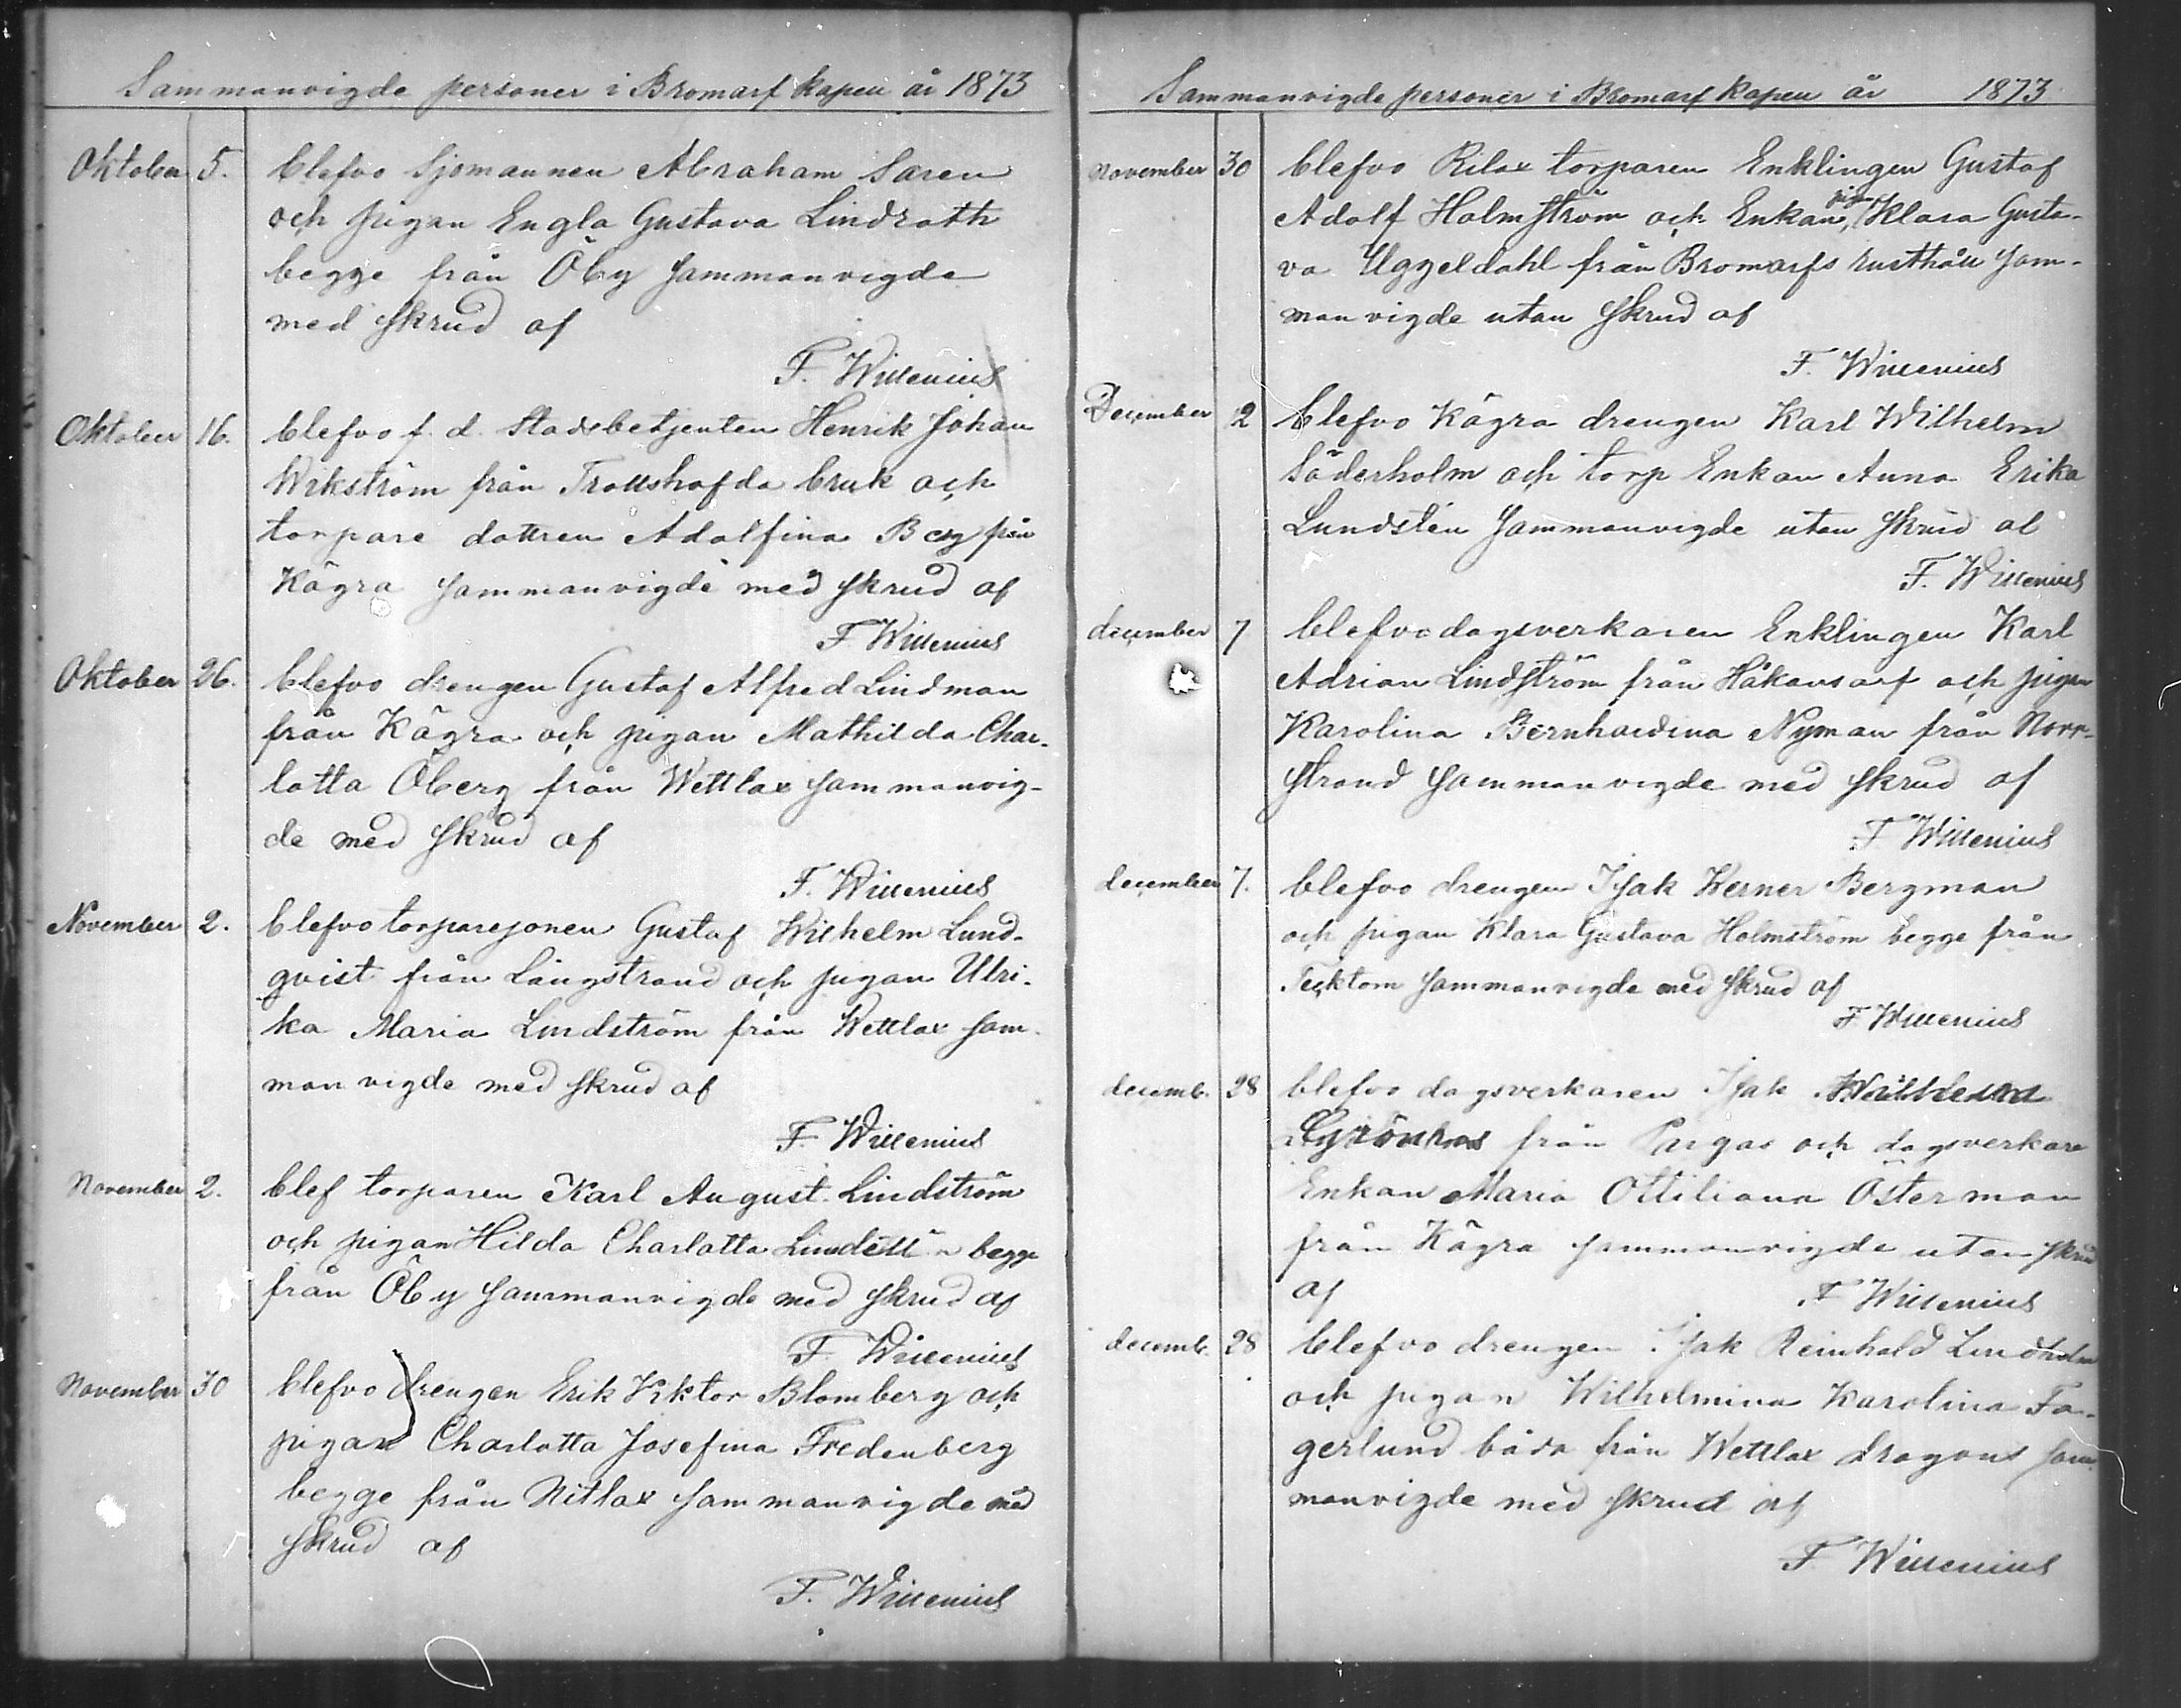 Sammanvigde personer i Bromarf kapell år 1873
Oktober 5. blefvo Sjömannen Abraham Saren
och pigan Engla Gustava Lindroth
begge från Öby sammanvigde
med skrud af
F. Willenius
Oktober 16. blefvo f. d. Stadsbetjenten Henrik Johan
Wikström från Trollshofda bruk och
torpare dottren Adolfina Berg från
Kägra sammanvigde med skrud af
F Willenius
Oktober 26. blefvo drengen Gustaf Alfred Lindman
från Kägra och pigan Mathilda Char-
lotta Öberg från Wettlax sammanvig-
de med skrud af
F. Willenius
November 2. blefvo torparesonen Gustaf Wilhelm Lund-
qvist från Långstrand och pigan Ulri-
ka Maria Lindström från Wettlax sam-
manvigde med skrud af
F. Willenius
November 2. blef torparen Karl August Lindström
och pigan Hilda Charlotta begge
från Öby sammanvigde med skrud af
F. Willenius
November 30 blefvo drengen Erik Viktor Blomberg och
pigan Charlotta Josefina Fredenberg
begge från Nitlax sammanvigde med
skrud af
F. Willenius
Sammanvigde personer i Bromarf kapell år 1873
November 30 blefvo Rilax torparen Enklingen Gustaf
Adolf Holmström och Enkan, pigan Klara Gusta-
va Uggeldahl från Bromarfs rusthåll sam-
manvigde utan skrud af
F. Willenius
December 2 blefvo Kägra drengen Karl Wilhelm
Söderholm och torp Enkan Anna Erika
Lundstén sammanvigde utan skrud af
F. Willenius
december 7 blefvo dagsverkaren Enklingen Karl
Adrian Lindström från Håkansarf och pigan
Karolina Bernhardina Nyman från Norr-
strand sammanvigde med skrud af
F Willenius
december 7. blefvo drengen Isak Werner Bergman
och pigan Klara Gustava Holmström begge från
Tecktom sammanvigde med skrud af
F. Willenius
decemb. 28 blefvo dagsverkaren Isak Wilhelm
Grönroos från Pargas och dagsverkare
Enkan Maria Ottiliana Österman
från Kägra sammanvigde utan skrud
af
F Willenius
decemb. 28 blefvo drengen Isak Reinhold Lindholm
och pigan Wilhelmina Karolina Fa-
gerlund båda från Wettlax dragons sam-
manvigde med skrud af
F Willenius